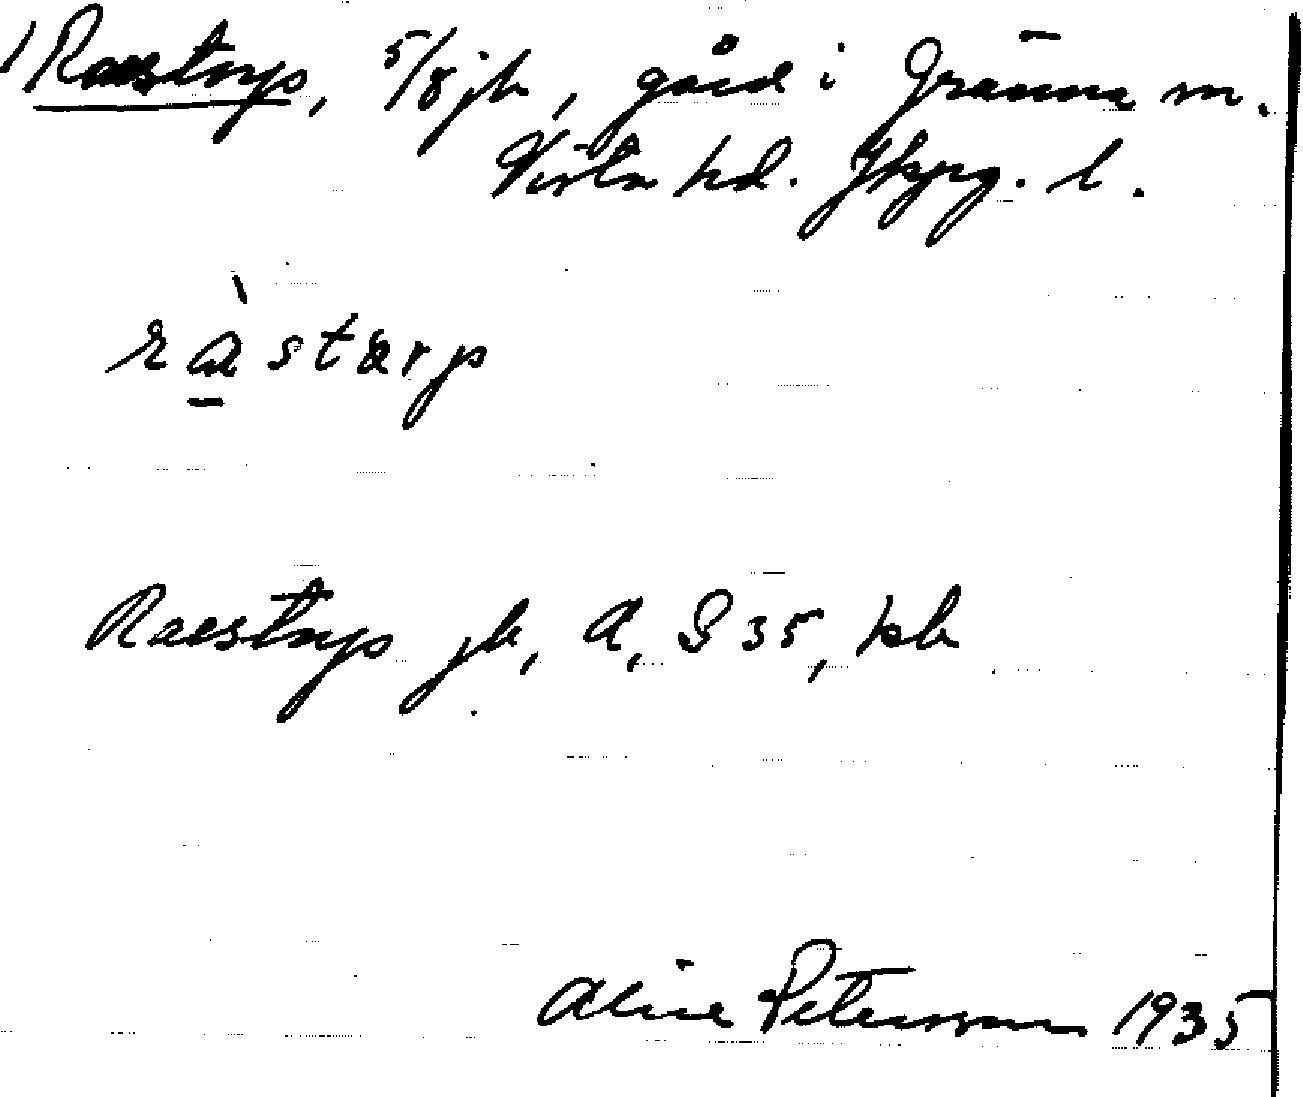 1 Raestorp, 5/8 jb, gård i Gränna m.
Vista hd. Jkpg. l.
ràstarp
Raestorp jb, A, S 35, kb
Aline Petersson 1935